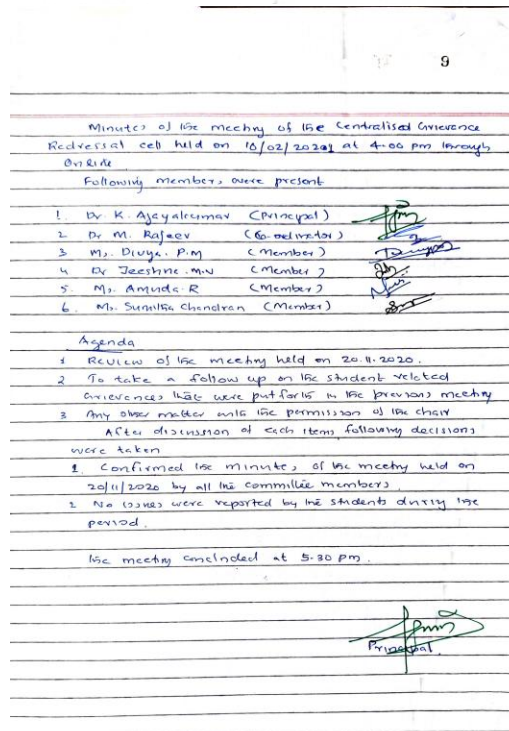 9
Minutes of the meeting of the Centralised Grievance
Redressal cell held on 10/02/2021 at 4.00 pm through
Online
Following members were present
1. Dr. K. Ajayakumar (Principal)
2 Dr M. Rajeev (Co-ordinator)
3 Ms. Divya. P.M (Member)
4 Dr Jeeshna. M.V (Member)
5. Ms. Amuda. R (Member)
6. Ms. Sunitha Chandran (Member)
Agenda
1 Review of the meeting held on 20.11.2020.
2 To take a follow up on the student related
Grievances that were put forth in the previous meeting
3 Any other matter with the permission of the chair
After discussion of each items following decisions
were taken
1. Confirmed the minutes of the meeting held on
20/11/2020 by all the committee members.
2 No issues were reported by the students during the
period.
The meeting concluded at 5.30 pm.
Principal